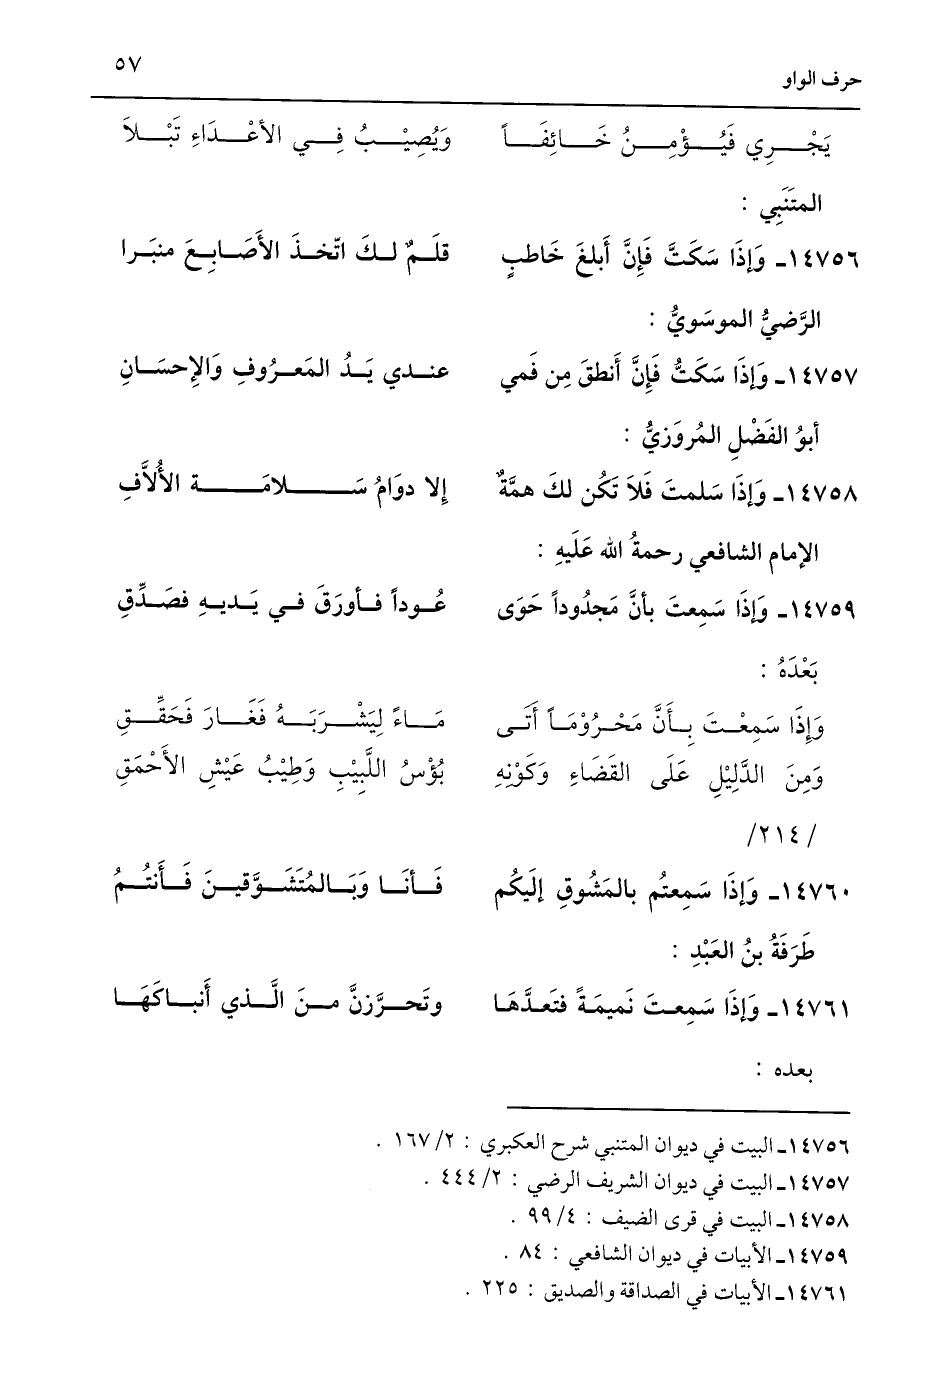 حرف الواو ٥٧
يَجْرِي فَيُؤْمِنُ خَائِفَاً وَيُصِيْبُ فِي الأعْدَاءِ تَبْلاَ
المتَنَبِي :
١٤٧٥٦ـ وَإِذَا سَكَتَّ فَإِنَّ أَبلغَ خَاطبٍ قلَمٌ لكَ اتّخذَ الأَصَابِعَ منبَرا
الرَّضيُّ الموسَويُّ :
١٤٧٥٧ـ وَإِذَا سَكَتُّ فَإِنَّ أَنطقَ مِن فَمي عندي يَدُ المَعرُوفِ وَالإِحسَانِ
أبوُ الفَضْلِ المُروَزيُّ :
١٤٧٥٨ـ وَإِذَا سَلمتَ فَلاَ تَكُن لكَ همَّةٌ إلا دوَامُ سَلامَة الأُلاَّفِ
الإمام الشافعي رحمةُ الله عَلَيهِ :
١٤٧٥٩ـ وَإِذَا سَمِعتَ بأنَّ مَجدُوداً حَوَى عُوداً فأورَقَ في يَديهِ فصَدِّقِ
بَعْدَهُ :
وَإِذَا سَمِعْتَ بِأَنَّ مَحْرُوْمَاً أَتَى مَاءً لِيَشْرَبَهُ فَغَارَ فَحَقِّقِ
وَمِنَ الدَّلِيْلِ عَلَى القَضَاءِ وَكَوْنِهِ بُؤْسُ اللَّبِيْبِ وَطِيْبُ عَيْشِ الأَحْمَقِ
/٢١٤/
١٤٧٦٠ـ وَإِذَا سَمِعتُم بالمَشُوقِ إلَيكُم فَأنَا وَبَالمُتَشَوَّقينَ فَأَنتُمُ
طَرَفَةُ بنُ العَبْدِ :
١٤٧٦١ـ وَإِذَا سَمِعتَ نَميمَةً فتَعدَّهَا وتَحرَّزنَّ منَ الَّذي أَنباكَهَا
بعده :
١٤٧٥٦ـ البيت في ديوان المتنبي شرح العكبري : ١٦٧/٢ .
١٤٧٥٧ـ البيت في ديوان الشريف الرضي : ٤٤٤/٢ .
١٤٧٥٨ـ البيت في قرى الضيف : ٩٩/٤ .
١٤٧٥٩ـ الأبيات في ديوان الشافعي : ٨٤ .
١٤٧٦١ـ الأبيات في الصداقة والصديق : ٢٢٥ .